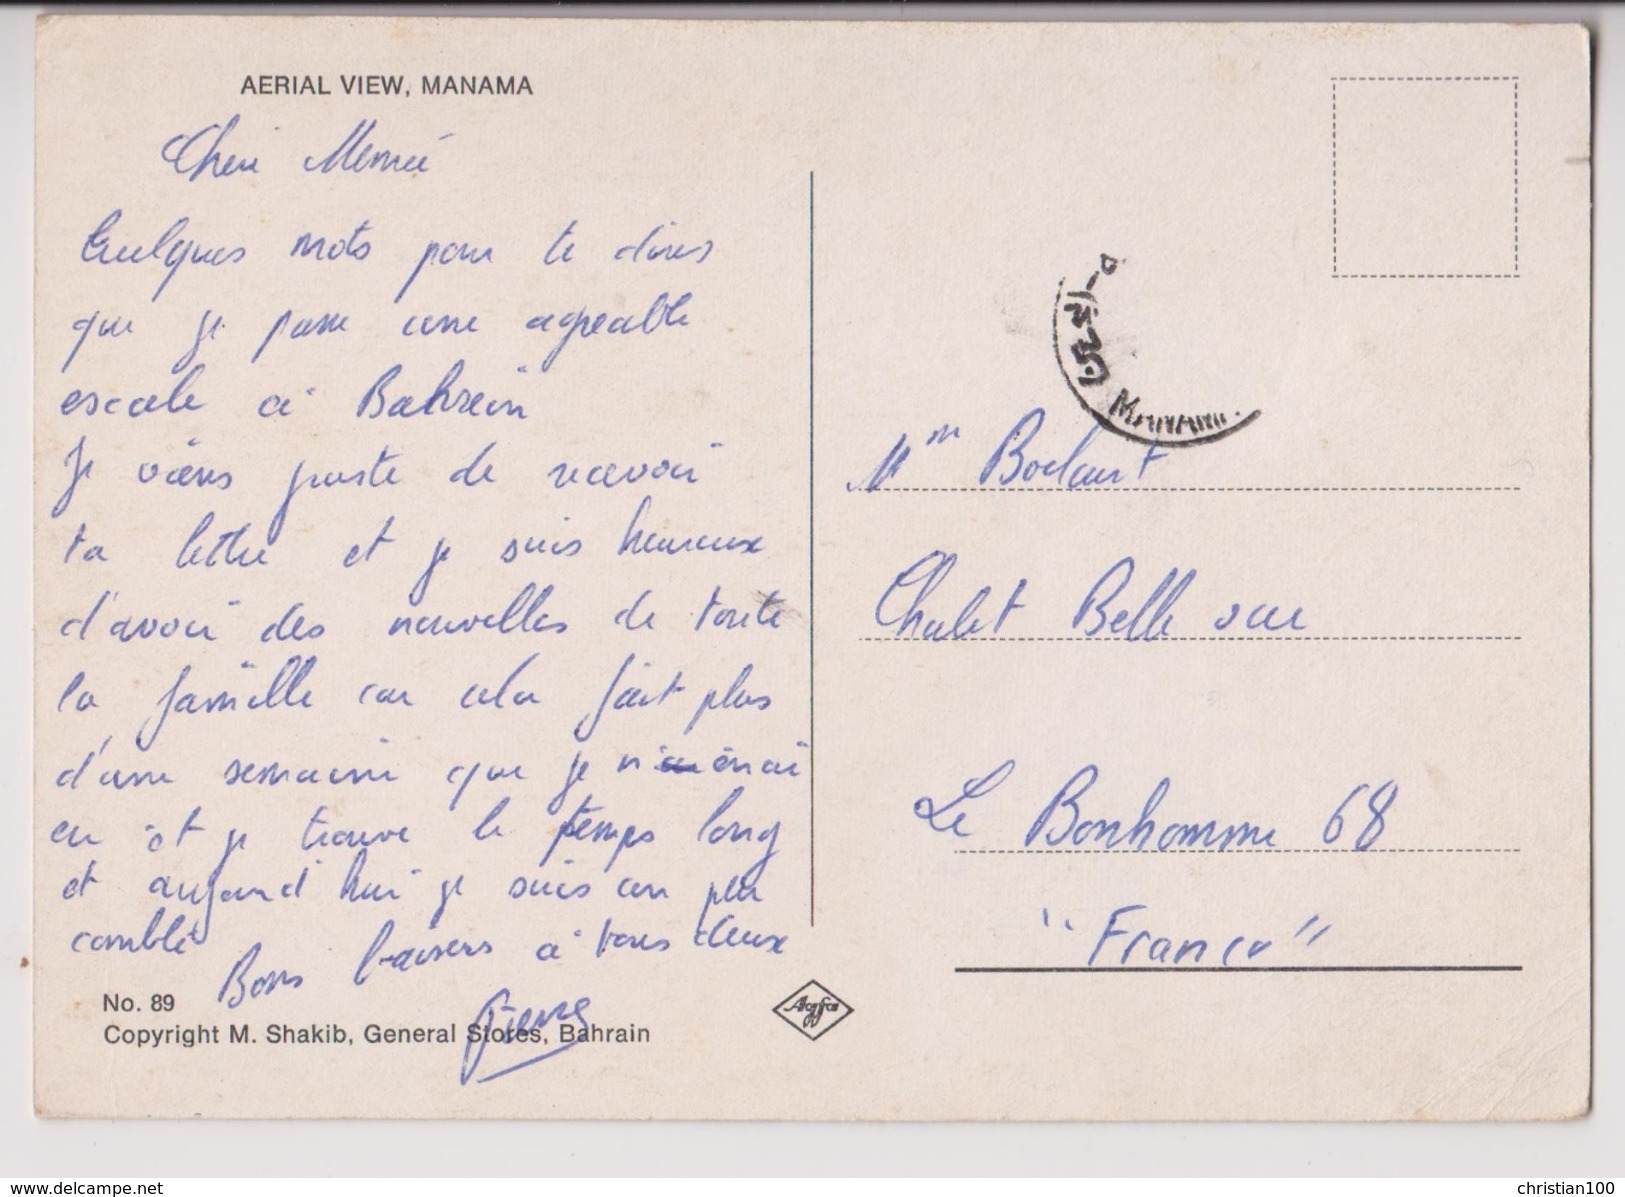 AERIAL VIEW, MANAMA
Cheri Memé
Quelques mots pour te dires
que je passe une agreable
escale à Bahrein
Je viens juste de recevoir
ta lettre et je suis heureux
d'avoir des nouvelles de toute
la famille car cela fait plus
d'une semaine que je n'
en et je trouve le temps long
et aujourd'hui je suis un peu
comblé
Bons baisers à tous deux
Pierre
No. 89
Copyright M. Shakib, General Stores, Bahrain
Agfa
Mme Boclart
Chalet Belle vue
Le Bonhomme 68
"France"
www.delcampe.net
christian100